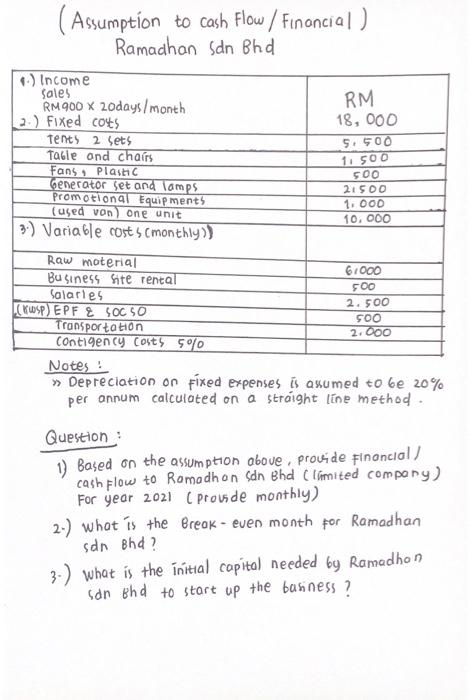 (Assumption to cash Flow / Financial)
Ramadhan Sdn Bhd
1.) Income
Sales
RM900 x 20days/month
RM
18,000
2.) Fixed costs
Tents 2 sets 5,500
Table and chairs 1,500
Fans, Plastic 500
Generator set and lamps 21500
Promotional Equipments 1.000
(used van) one unit 10,000
3.) Variable costs (monthly))
Raw material 61000
Business site rental 500
Salaries 2.500
(KWSP) EPF & SOCSO 500
Transportation 2.000
Contigency costs 5%
Notes :
» Depreciation on fixed expenses is assumed to be 20%
per annum calculated on a straight line method.
Question :
1) Based on the assumption above, provide financial /
cash flow to Ramadhan Sdn Bhd (limited company)
For year 2021 (provide monthly)
2.) What is the Break-even month for Ramadhan
sdn Bhd ?
3.) What is the initial capital needed by Ramadhan
sdn Bhd to start up the business ?